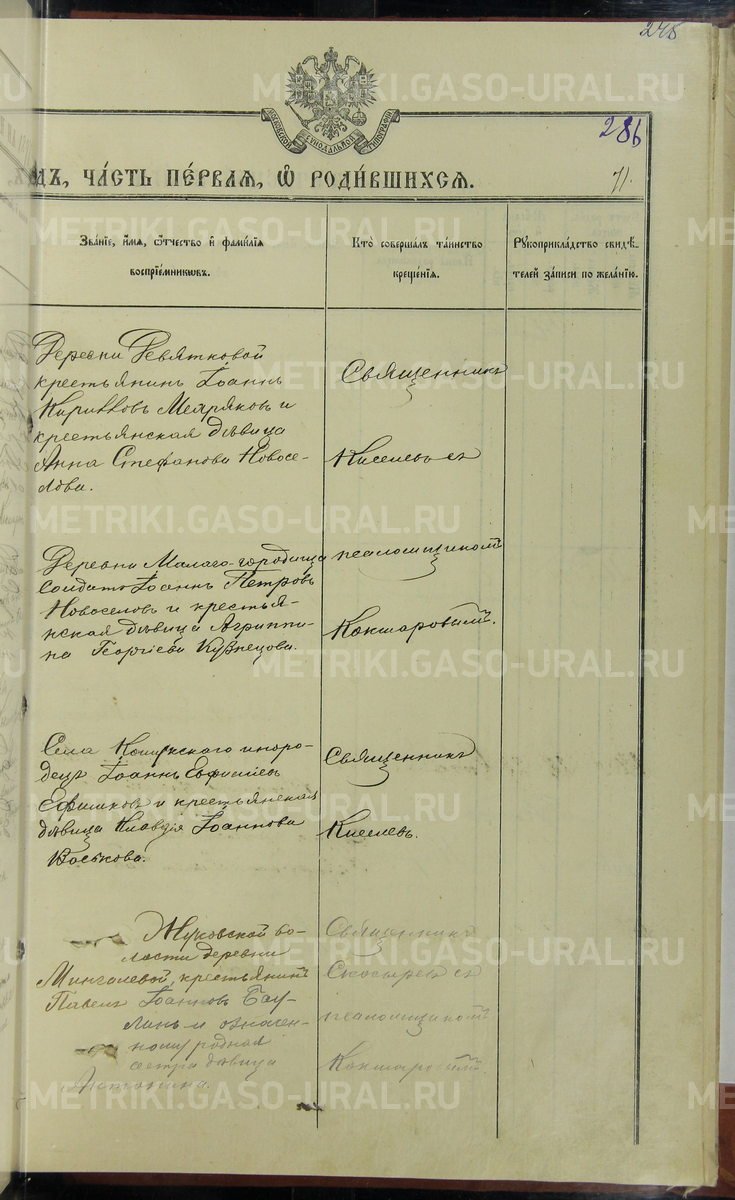 248
286
МОСКОВСКОЙ СѴНОДАЛЬНОЙ ТИПОГРАФІИ
ЧА́СТЬ ПЕ́РВАЯ, Ѡ҆ РОДИ́ВШИХСЯ.
71.
Зва́нїе, и҆́мя, ѻ҆́тчество и҆ фами́лїя
воспрїе́мникѡвъ.
Кто̀ соверша́лъ та́инство
креще́нїя.
Рꙋкоприкла́дство свидѣ́-
телей за́писи по жела́нїю.
Деревни Девятковой
крестьянинъ Іоаннъ
Кирилловъ Меяряковъ и
крестьянская дѣвица
Анна Стефанова Новосе-
лова.
Священникъ
Киселевъ съ
псаломщикомъ
Кокшаровымъ.
Деревни Малаго-городища
солдатъ Іоаннъ Петровъ
Новоселовъ и крестья-
нская дѣвица Агриппи-
на Георгіева Кузнецова.
Села Кошукскаго иноро-
децъ Іоаннъ Евфиміевъ
Ефимковъ и крестьянская
дѣвица Клавдія Іоаннова
Воськова.
Священникъ
Киселевъ.
Жуковской во-
лости деревни
крестьянинъ
Павелъ Іоанновъ Бау-
линъ и означен-
ному родная
сестра дѣвица
Антонина.
Священникъ
съ
псаломщикомъ
Кокшаровымъ
METRIKI.GASO-URAL.RU